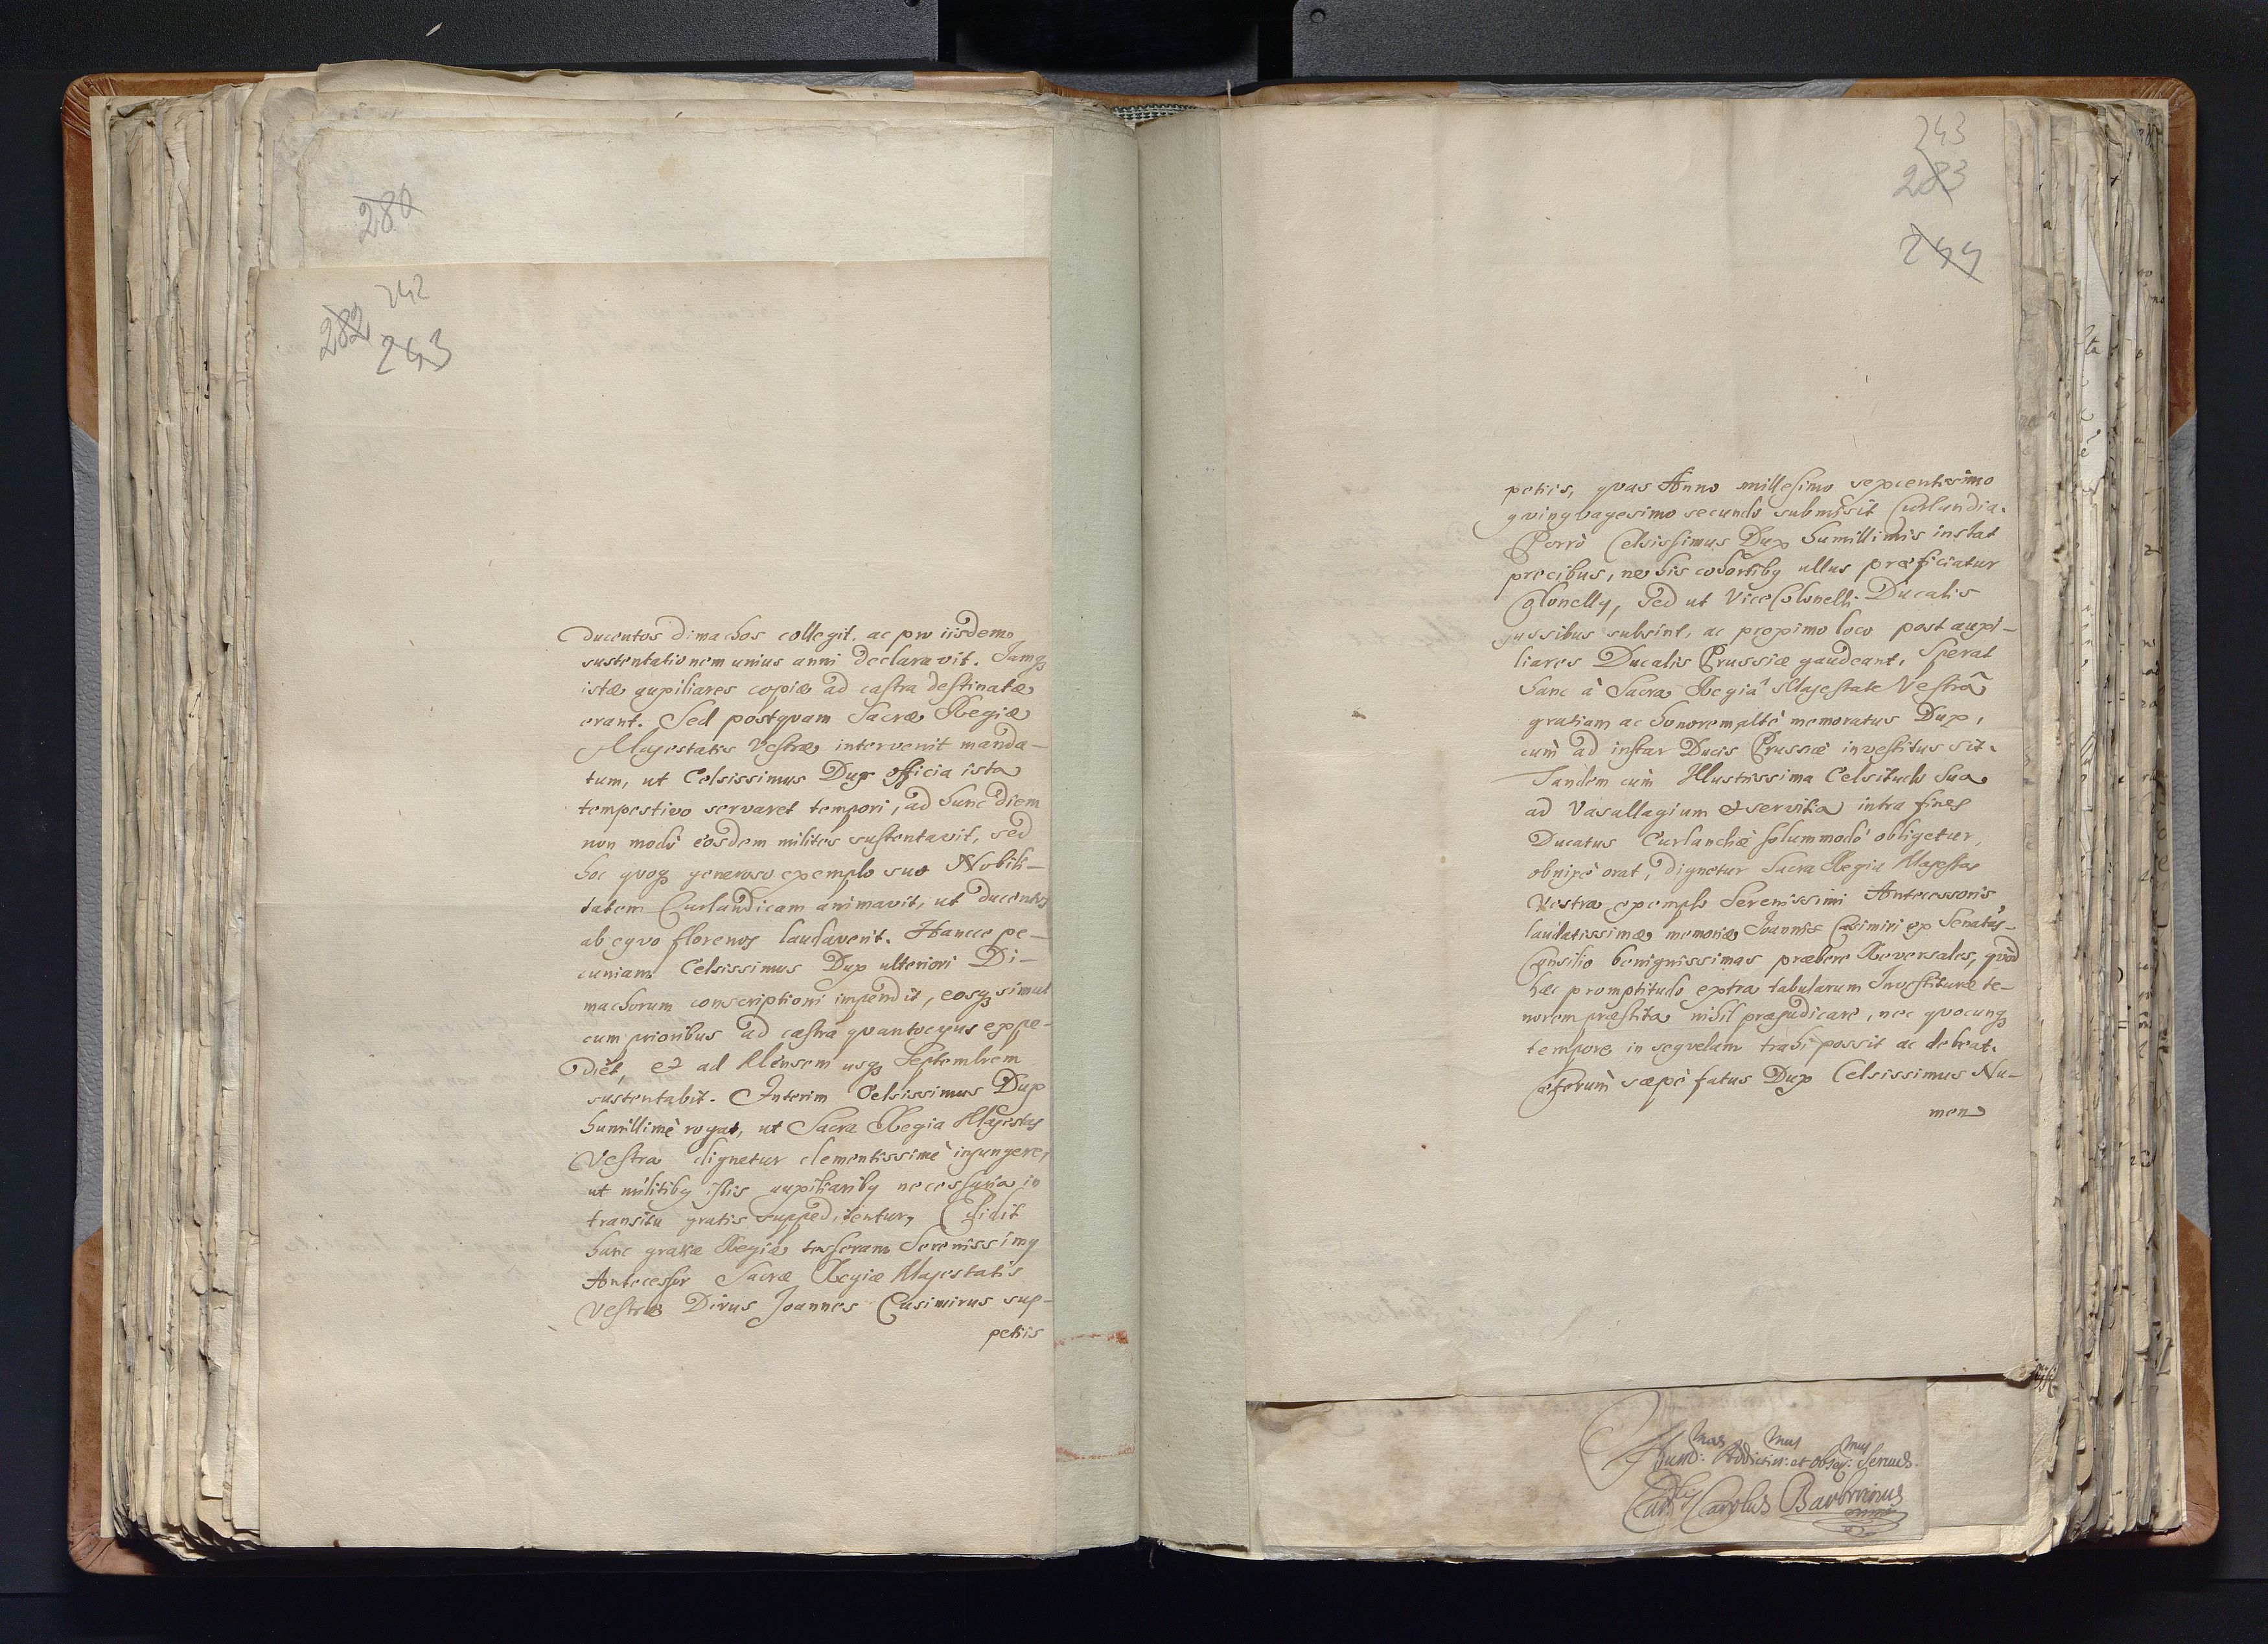 280
242
282
243
ducentos dimachos collegit, ac pro iisdem
sustentationem unius anni declaravit. Jamq₃
istæ auxiliares copiæ ad castra destinatæ
erant. Sed postqvam Sacræ Regiæ
Majestatis Vestræ intervenit manda-
tum, ut Celsissimus Dux officia ista
tempestivo servaret tempori, ad hunc diem
non modò eosdem milites sustentavit, sed
hoc qvoq₃ generoso exemplo suo Nobili-
tatem Curlandicam animavit, ut ducentos
ab eqvo florenos laudaverit. Hancce pe-
cuniam Celsissimus Dux ulteriori Di-
machorum conscriptioni impendit, eosq₃ simul
cum prioribus ad castra qvantocyus expe-
diet, et ad Mensem usq₃ Septembrem
sustentabit. Interim Celsissimus Dux
humillimè rogat, ut Sacra Regia Majestas
Vestra dignetur clementissimè injungere,
ut militibꝰ istis auxiliaribꝰ necessaria in
transitu gratis suppeditentur, Edidit
hanc gratiæ Regiæ tesseram Serenissimꝰ
Antecessor Sacræ Regiæ Majestatis
Vestræ Divus Joannes Casimirus sup-
petiis
243
283
244
petiis, qvas Anno millesimo sexcentesimo
qvinqvagesimo secundo submisit Curlandia.
Porrò Celsissimus Dux humillimis instat
precibus, ne his cohortibꝰ ullus præficiatur
Colonellꝰ, sed ut Vice Colonelli Ducalis
jussibus subsint, ac proximo loco post auxi-
liares Ducalis Prussiæ gaudeant. Sperat
hanc à Sacra Regiâ Majestate Vestrâ
gratiam ac honorem altè memoratus Dux,
cum ad instar Ducis Prussiæ investitus sit.
Tandem cùm Illustrissima Celsitudo Sua
ad Vasallagium et servitia intra fines
Ducatus Curlandiæ solummodò obligetur,
obnixè orat, dignetur Sacra Regia Majestas
Vestra exemplo Serenissimi Antecessoris,
laudatissimæ memoriæ Joannis Casimiri ex Senatûs-
Consilio benignissimas præbere Reversales, qvòd
hæc promptitudo extra tabularum Investituræ te-
norem præstita nihil præjudicare, nec qvocunq₃
tempore in seqvelam trahi possit ac debeat.
Cæterùm sæpè fatus Dux Celsissimus Nu-
men
Carolus Barbrinus